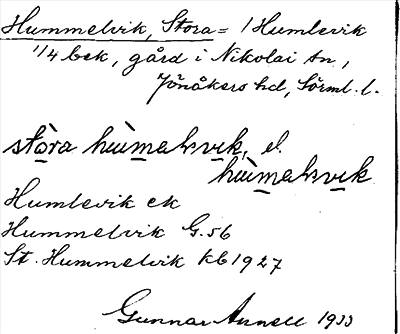 Hummelvik, Stora = / Humlevik
1/4 bek, gård i Nikolai sn,
Jönåkers hd, Sörml. l.
stòra hùməlvik, el.
hùməlvik
Humlevik ek
Hummelvik G. 56
St. Hummelvik kb 1927
Gunnar Annell 1933